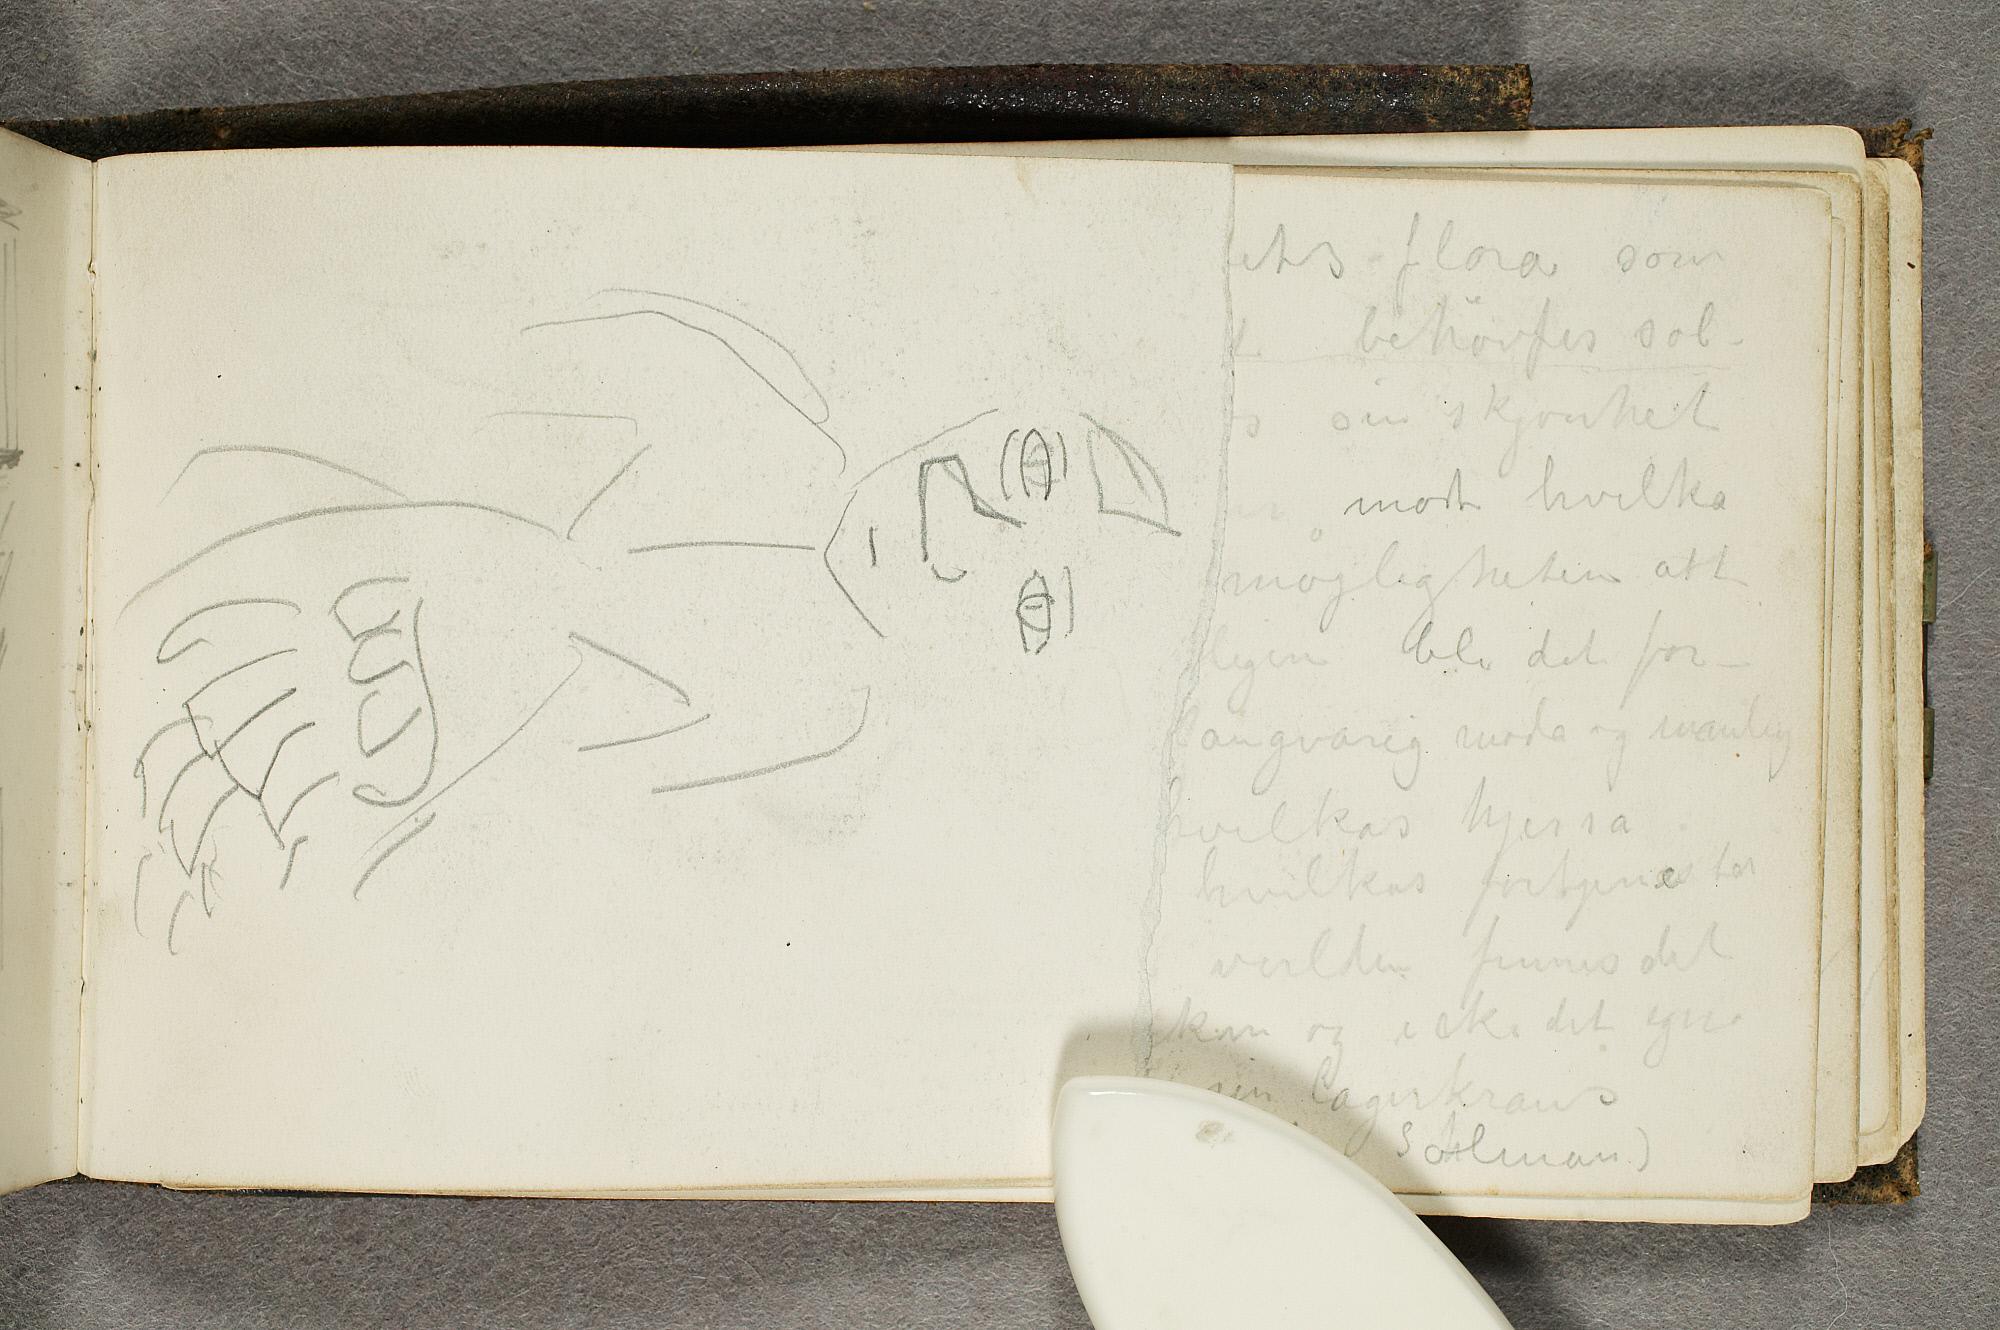 ets flora som
behöfves sol-
s sin skjønhet
mod hvilka
møgligheten att
ligen ble det for-
langvarig møda og manlig
hvilkas hjessa
hvilkas fortjenester
verlden finnes det
kan og icke det egna
sin Lagerkrans
Sohlman)